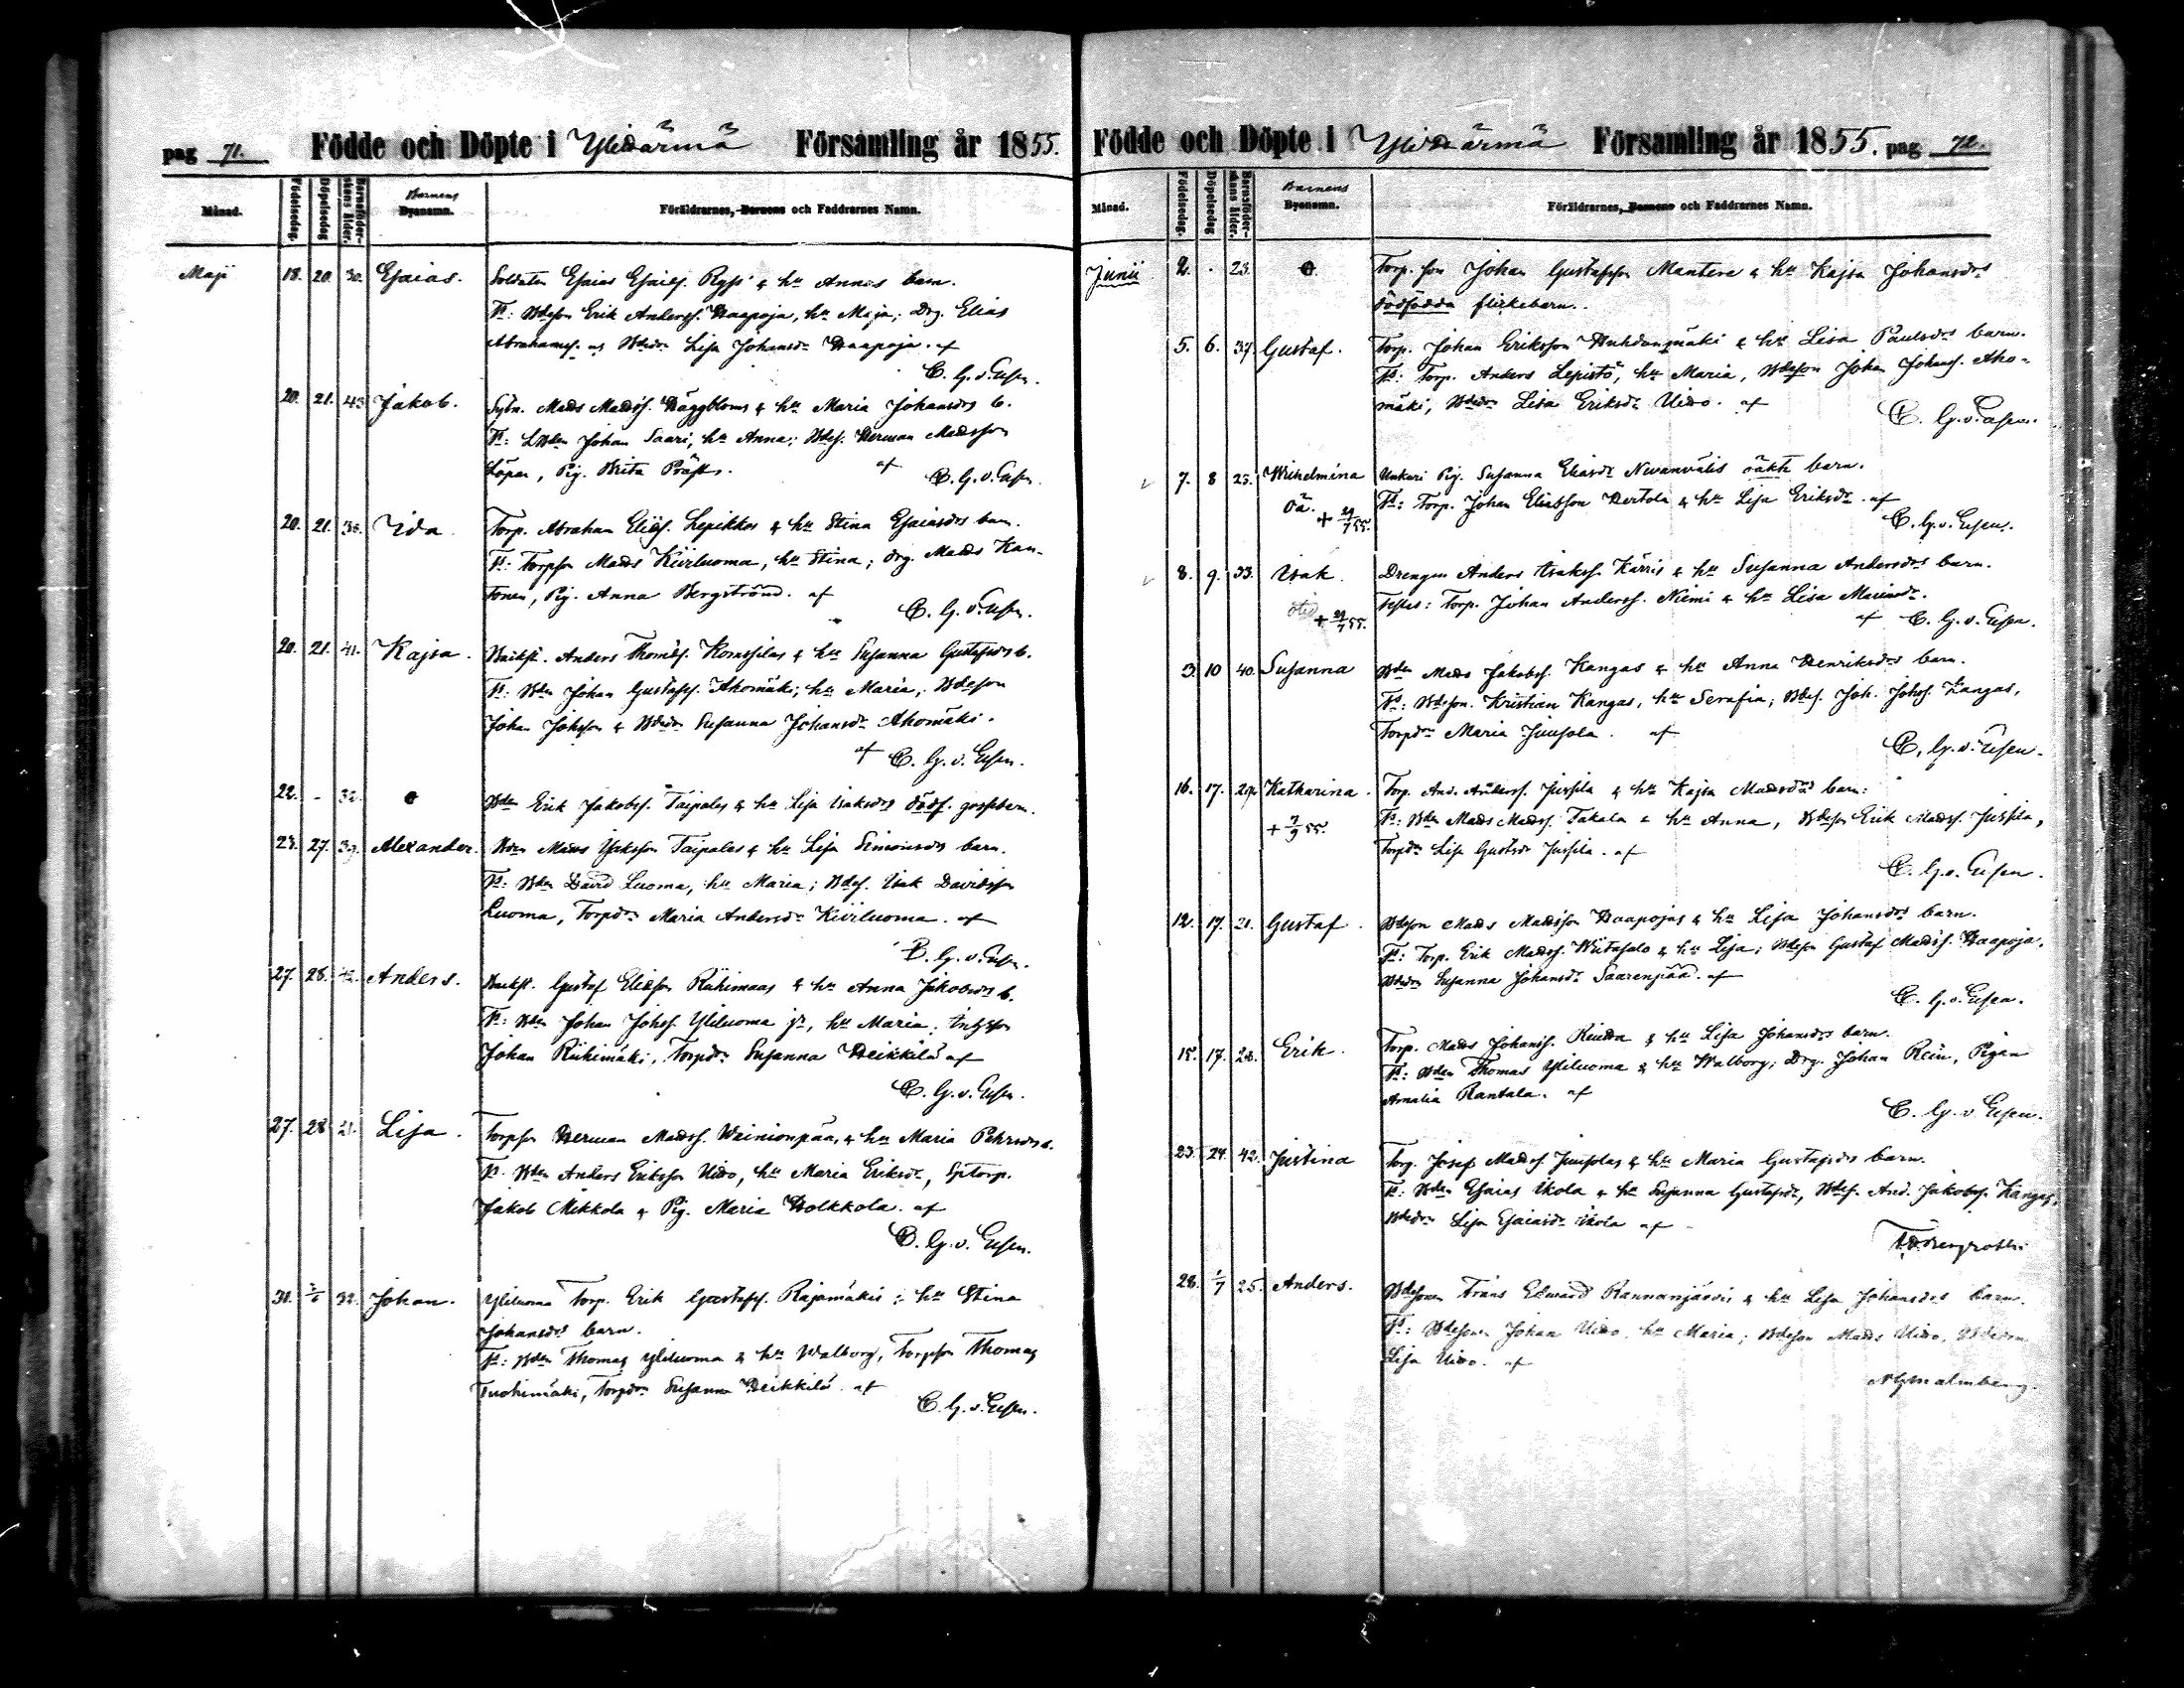 pag 71. Födde och Döpte i Ylihärmä Församling år 1855.
Månad. Födelsedag. Döpelsedag Barnaföderskans ålder. Barnens Byanamn. Föräldrarnes, Barnens och Faddrarnes Namn.
Maji 18. 20. 30. Esaias. Soldaten Esaias Esaiss. Ryss & hu Annas barn.
Fs: Bdeson Erik Anderss. Haapoja, hu Maja; Drg. Elias
Abrahamss. Bdedr Lisa Johansdr Haapoja. af
C. G. v. Essen.
20. 21. 43 Jakob. Mads Madss. Häggbloms & hu Maria Johansdrs b.
Fs: Johan Saari, hu Anna; Bdes. Herman Madsson
Pig. Brita af
C. G. v. Essen.
20. 21. Ida. Torp. Abraham Eliess. Lepikkos & hu Stina Esaiasdrs barn.
Fs: Torpson Mads Kiviluoma, hu Stina; drg. Mads Kan-
tonen, Pig. Anna Bergström. af
C. G. v. Essen.
20. 21. 41. Kajsa. Anders Thomass. & hu Susanna Gustafsdrs b.
Fs: Bden Johan Gustafss. Ahomäki; hu Maria; Bdeson
Johan Johsson & Bdedr Susanna Johansdr Ahomäki.
af C. G. v. Essen.
22. - 32. Bden Erik Jakobss. Taipales & hu Lisa Isaksdrs dödf. gossebarn.
23. 27. Alexander. Bden Mads Isaksson Taipales & hu Lisa Simonsdrs barn.
Fs: Bden David Luoma, hu Maria; Bdes. Isak Davidsson
Luoma, Torpdr Maria Andersdr Kiviluoma. af
C. G. v. Essen.
27. 28. Anders. Gustaf Eliasson Riihimaas & hu Anna Jakobsdrs b.
Fs: Bden Johan Johss. Yliluoma jr, hu Maria;
Johan Riihimäki, Torpdr Susanna Heikkilä af
C. G. v. Essen.
27. 28 21. Lisa. Torpson Herman Madss. Wainionpää, & hu Maria Pehrsdrs b.
Fs. Bden Anders Eriksson Uivo, hu Maria Eriksdr,
Jakob Mikkola & Pig. Maria Holkkola. af
C. G. v. Essen.
31. 32. Johan. Yliluoma Torp. Erik Gustafss. Rajamäkis & hu Stina
Johansdrs barn.
Fs: Bden Thomas Yliluoma & hu Walborg, Torpson Thomas
Tuohimäki, Torpdr Susanna Heikkilä. af
C. G. v. Essen.
Födde och Döpte i Ylihärmä Församling år 1855. pag 72.
Månad. Födelsedag. Döpelsedag Barnaföderskans ålder. Barnens Byanamn. Föräldrarnes, Barnens och Faddrarnes Namn.
Junii 2. . 23. Torp. son Johan Gustafsson Mantere & hu Kajsa Johansdrs
dödfödda flickebarn.
5. 6. 37. Gustaf. Torp. Johan Eriksson Huhdanmäki & hu Lisa Paulsdrs barn.
Fs: Torp. Anders Lepistö, hu Maria, Bdeson Johan Johanss. Aho-
mäki, Bdedr Lisa Eriksdr Uivo. af
C. G. v. Essen.
7. 8 23. Wilhelmina Unkuri Pig. Susanna Eliasdr oäkta barn.
oä. + 29/7 55. Fs: Torp. Johan Eliasson Hertola & hu Lisa Eriksdr. af
C. G. v. Essen.
8. 9. 33. Isak. Drengen Anders Isakss. Kärris & hu Susanna Andersdrs barn.
+ 29/7 55. Testes: Torp. Johan Anderss. Niemi & hu Lisa
af C. G. v. Essen.
3. 10 40. Susanna Bden Mads Jakobss. Kangas & hu Anna Henriksdrs barn.
Fs: Bdeson. Kristian Kangas, hu Serafia; Bdes. Joh. Johss. Kangas,
Torpdr Maria Juusola. af
C. G. v. Essen.
16. 17. 29. Katharina. Torp. And. Anderss. Jussila & hu Kajsa Madsdrs barn:
+ 7/9 55. Fs: Bden Mads Madss. Takala & hu Anna, Bdeson Erik Madss. Jussila,
Torpdr Lisa Gustsdr Jussila. af
C. G. v. Essen.
12. 17. 21. Gustaf. Bdeson Mads Madsson Haapojas & hu Lisa Johansdrs barn.
Fs: Torp. Erik Madss. Wiitasalo & hu Lisa; Bdeson Gustaf Madss. Haapoja,
Bdedr Susanna Johansdr Saarenpää. af
C. G. v. Essen.
15. 17. 28. Erik. Torp. Mads Johanss. & hu Lisa Johansdrs barn.
Fs: Bden Thomas Yliluoma & hu Walborg; Drg. Johan Rein, Pigan
Amalia Rantala. af
C. G. v. Essen.
23. 24. 42. Justina Torp. Josef Madss. Juusolas & hu Maria Gustafsdrs barn.
Fs: Bden Esaias Ikola & hu Susanna Gustafsdr, Bdes. And. Jakobss. Kangas,
Bdedr Lisa Esaiasdr Ikola af
28. 1/7 25. Anders. Bdesonen Frans Edward Rannanjärvis & hu Lisa Johansdrs barn.
Fs: Bdesonen Johan Uivo, hu Maria; Bdeson Mads Uivo, Bdedren
Lisa Uivo. af
Malmberg.